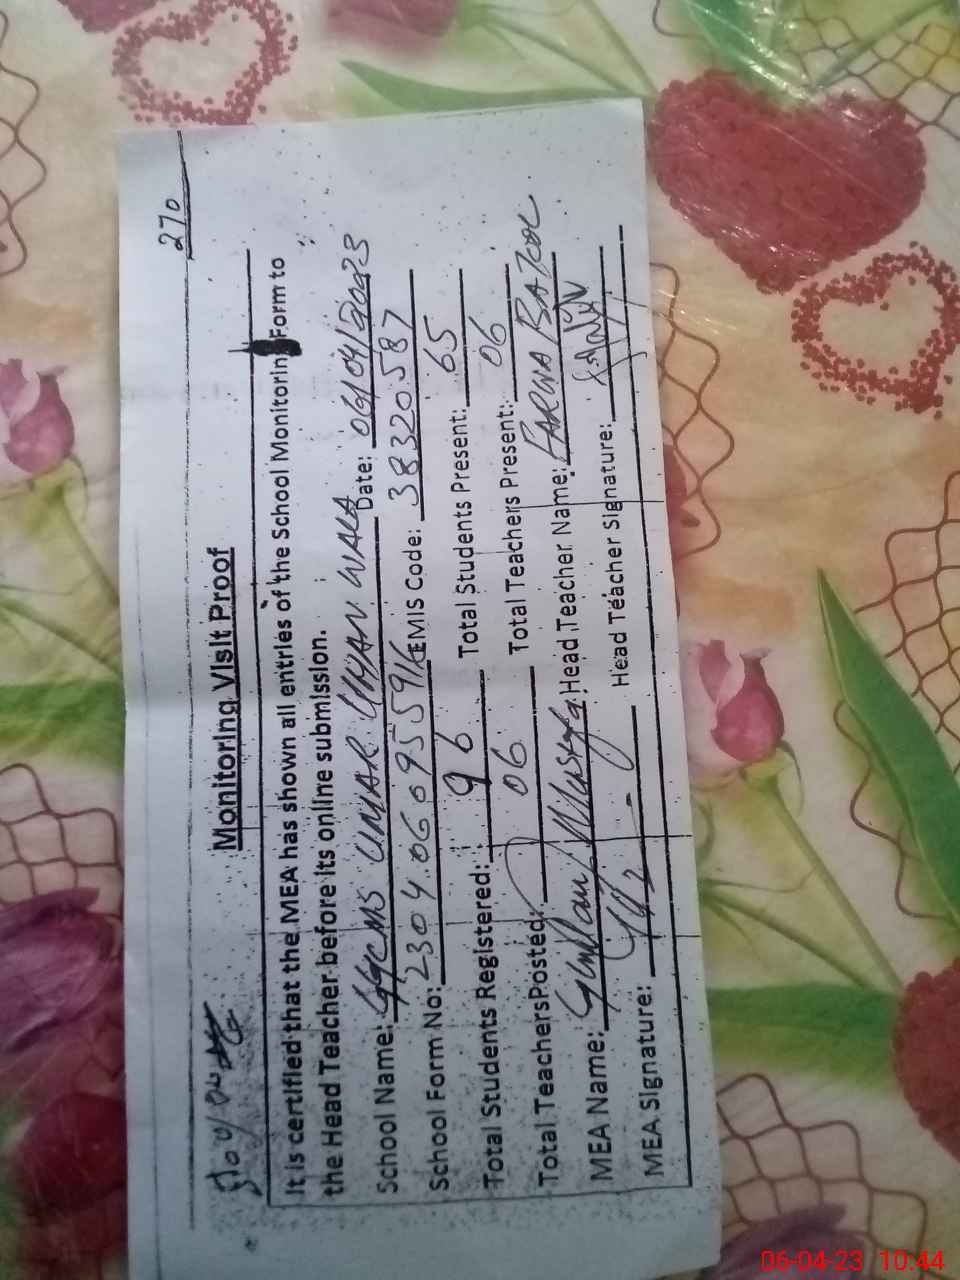 270
Monitoring Visit Proof
It is certified that the MEA has shown all entries of the School Monitoring Form to
the Head Teacher before its online submission.
School Name: GGCMS UMAR WALA Date: 06/04/2023
School Form No: EMIS Code: 38320587
Total Students Registered: 96 Total Students Present: 65
Total Teachers Posted: 06 Total Teachers Present: 06
MEA Name: Ghulam Mustafa Head Teacher Name: FARWA BATOOL
MEA Signature: Head Teacher Signature:
06-04-23 10:44